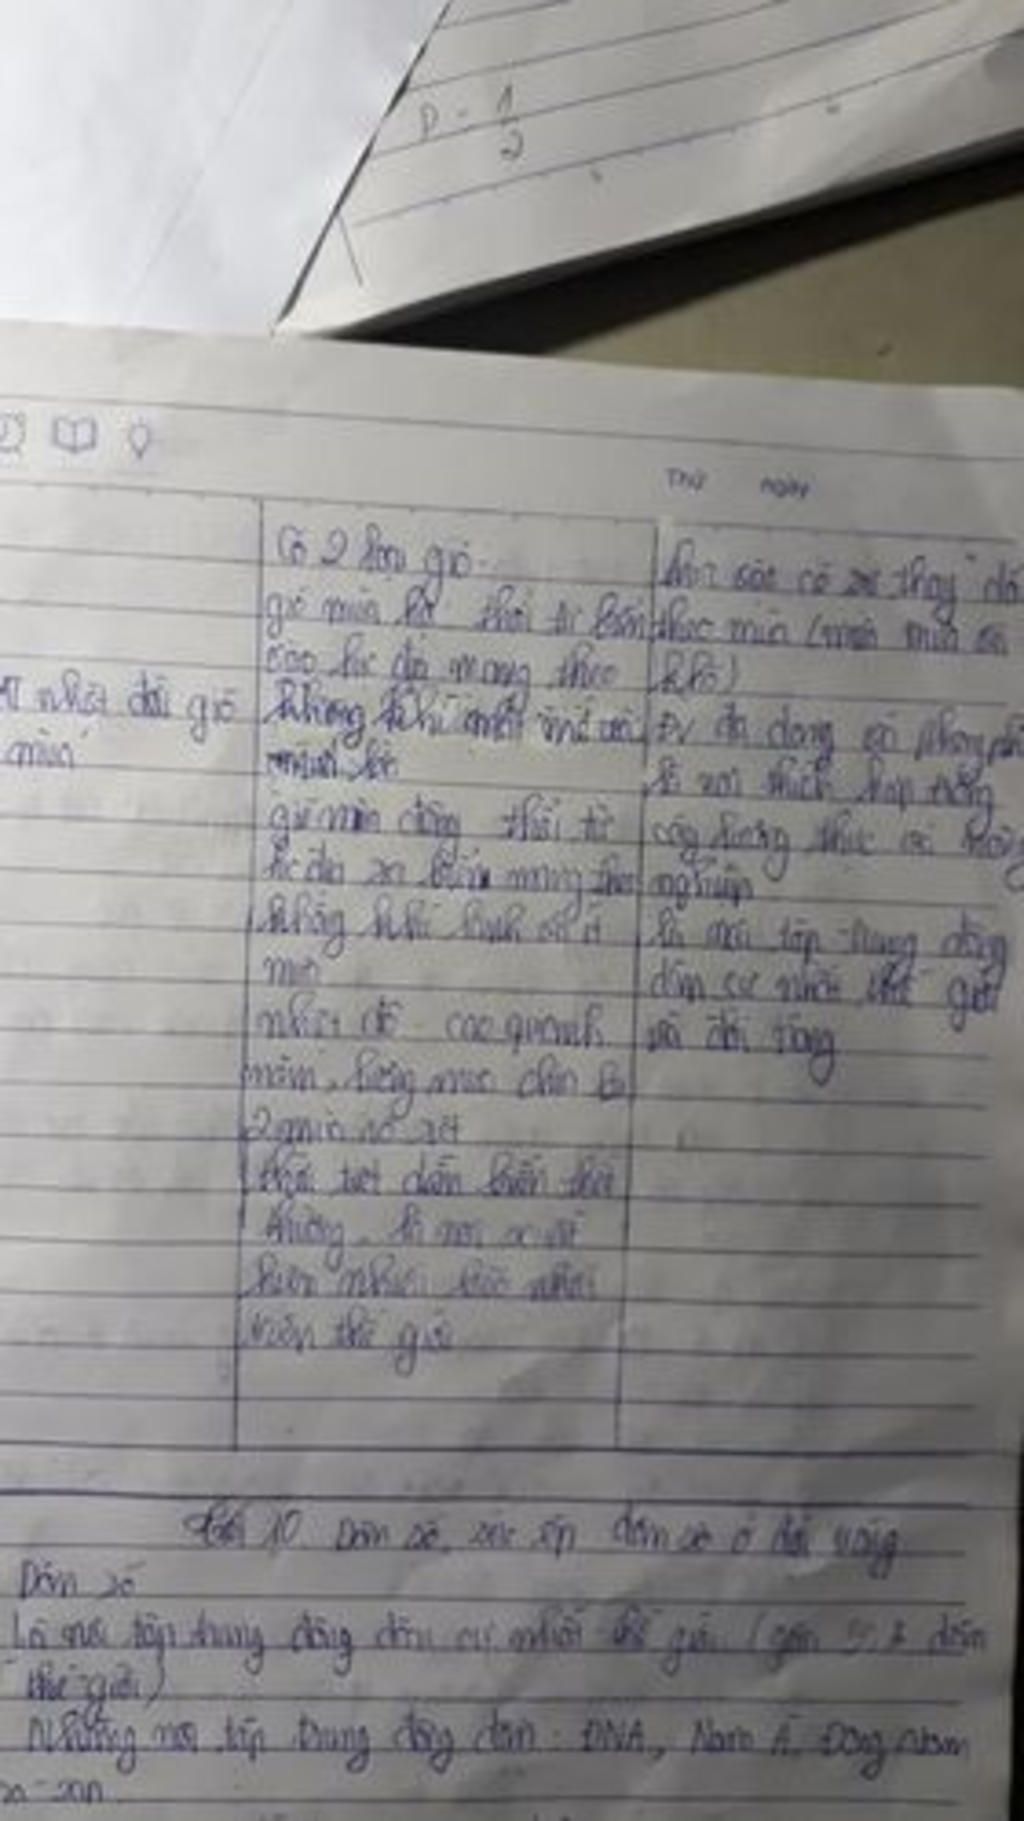 P = 1/2
Thứ ngày
Có 2 loại gió
gió mùa hạ thổi từ biển
vào lục địa mang theo
không khí mát mẻ và
mưa lớn
gió mùa đông thổi từ
lục địa ra biển mang theo
không khí lạnh và ít
mưa
nhiệt độ cao quanh
năm, lượng mưa chia ra
2 mùa rõ rệt
thời tiết diễn biến thất
thường, là nơi
trên thế giới
nhiệt đới gió
mùa
cảnh sắc có sự thay đổi
theo mùa (mùa mưa và
khô)
ĐV đa dạng và phong phú
là nơi thích hợp trồng
cây lương thực và công
nghiệp
là nơi tập trung đông
dân cư nhất thế giới
và đới nóng
Bài 10 Dân số, sức ép dân số ở đới nóng
Dân số
Là nơi tập trung đông dân cư nhất thế giới (gần dân
thế giới)
Những nơi tập trung đông dân: ĐNA, Nam Á, Đông Nam